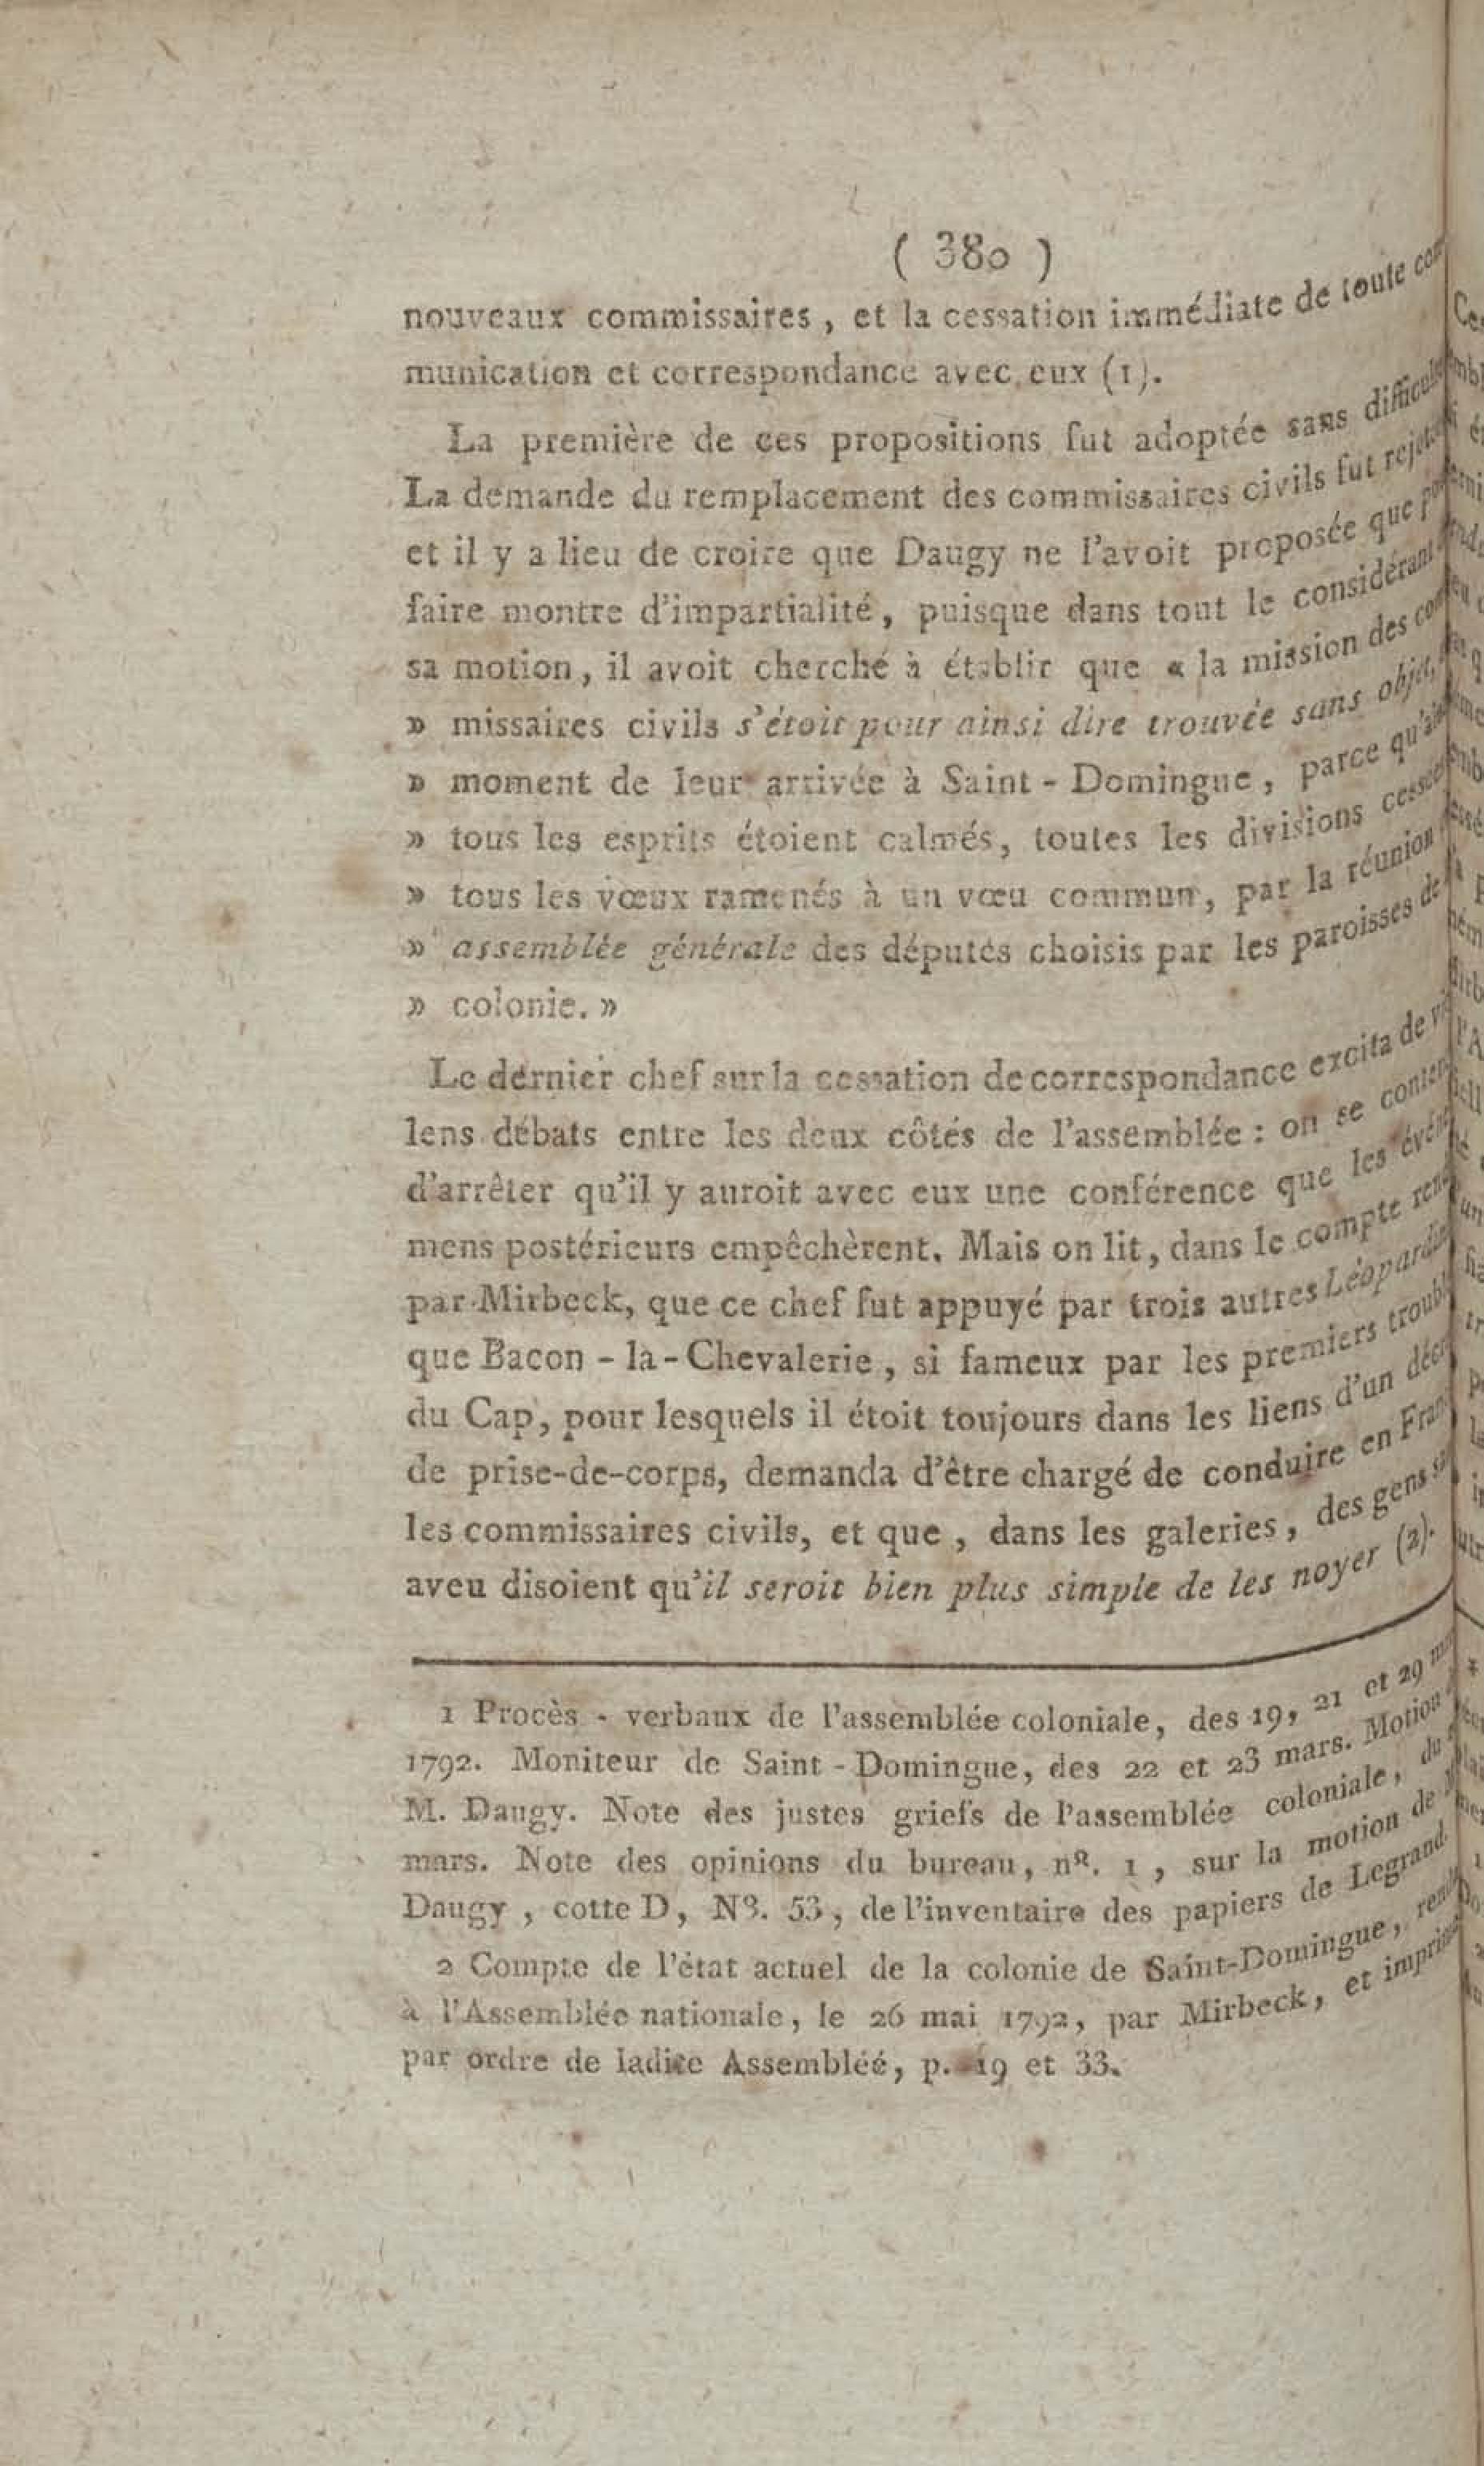 ( 380 )
nouveaux commissaires, et la cessation immédiate de toute com
munication et correspondance avec eux (1).
La première de ces propositions fut adoptée sans
La demande du remplacement des commissaires civils fut
et il y a lieu de croire que Daugy ne l'avoit proposée que
faire montre d'impartialité, puisque dans tout le considérant
sa motion, il avoit cherché à établir que « la mission des com
» missaires civils s'étoit pour ainsi dire trouvée sans objet,
» moment de leur arrivée à Saint-Domingue, parce
» tous les esprits étoient calmés, toutes les divisions
» tous les vœux ramenés à un vœu commun, par la réunion
» assemblée générale des députés choisis par les paroisses de
» colonie. »
Le dernier chef sur la cessation de correspondance excita de
lens débats entre les deux côtés de l'assemblée : on se
d'arrêter qu'il y auroit avec eux une conférence que les
mens postérieurs empêchèrent. Mais on lit, dans le compte
par Mirbeck, que ce chef fut appuyé par trois autres
que Bacon-la-Chevalerie, si fameux par les premiers
du Cap, pour lesquels il étoit toujours dans les liens d'un
de prise-de-corps, demanda d'être chargé de conduire en
les commissaires civils, et que, dans les galeries, des gens
aveu disoient qu'il seroit bien plus simple de les noyer (2).
1 Procès-verbaux de l'assemblée coloniale, des 19, 21 et 29
1792. Moniteur de Saint-Domingue, des 22 et 23 mars. Motion
M. Daugy. Note des justes griefs de l'assemblée coloniale, du
mars. Note des opinions du bureau, nº. 1, sur la motion de
Daugy, cotte D, Nº. 53, de l'inventaire des papiers de Legrand.
2 Compte de l'état actuel de la colonie de Saint-Domingue,
à l'Assemblée nationale, le 26 mai 1792, par Mirbeck, et
par ordre de ladite Assemblée, p. 19 et 33.